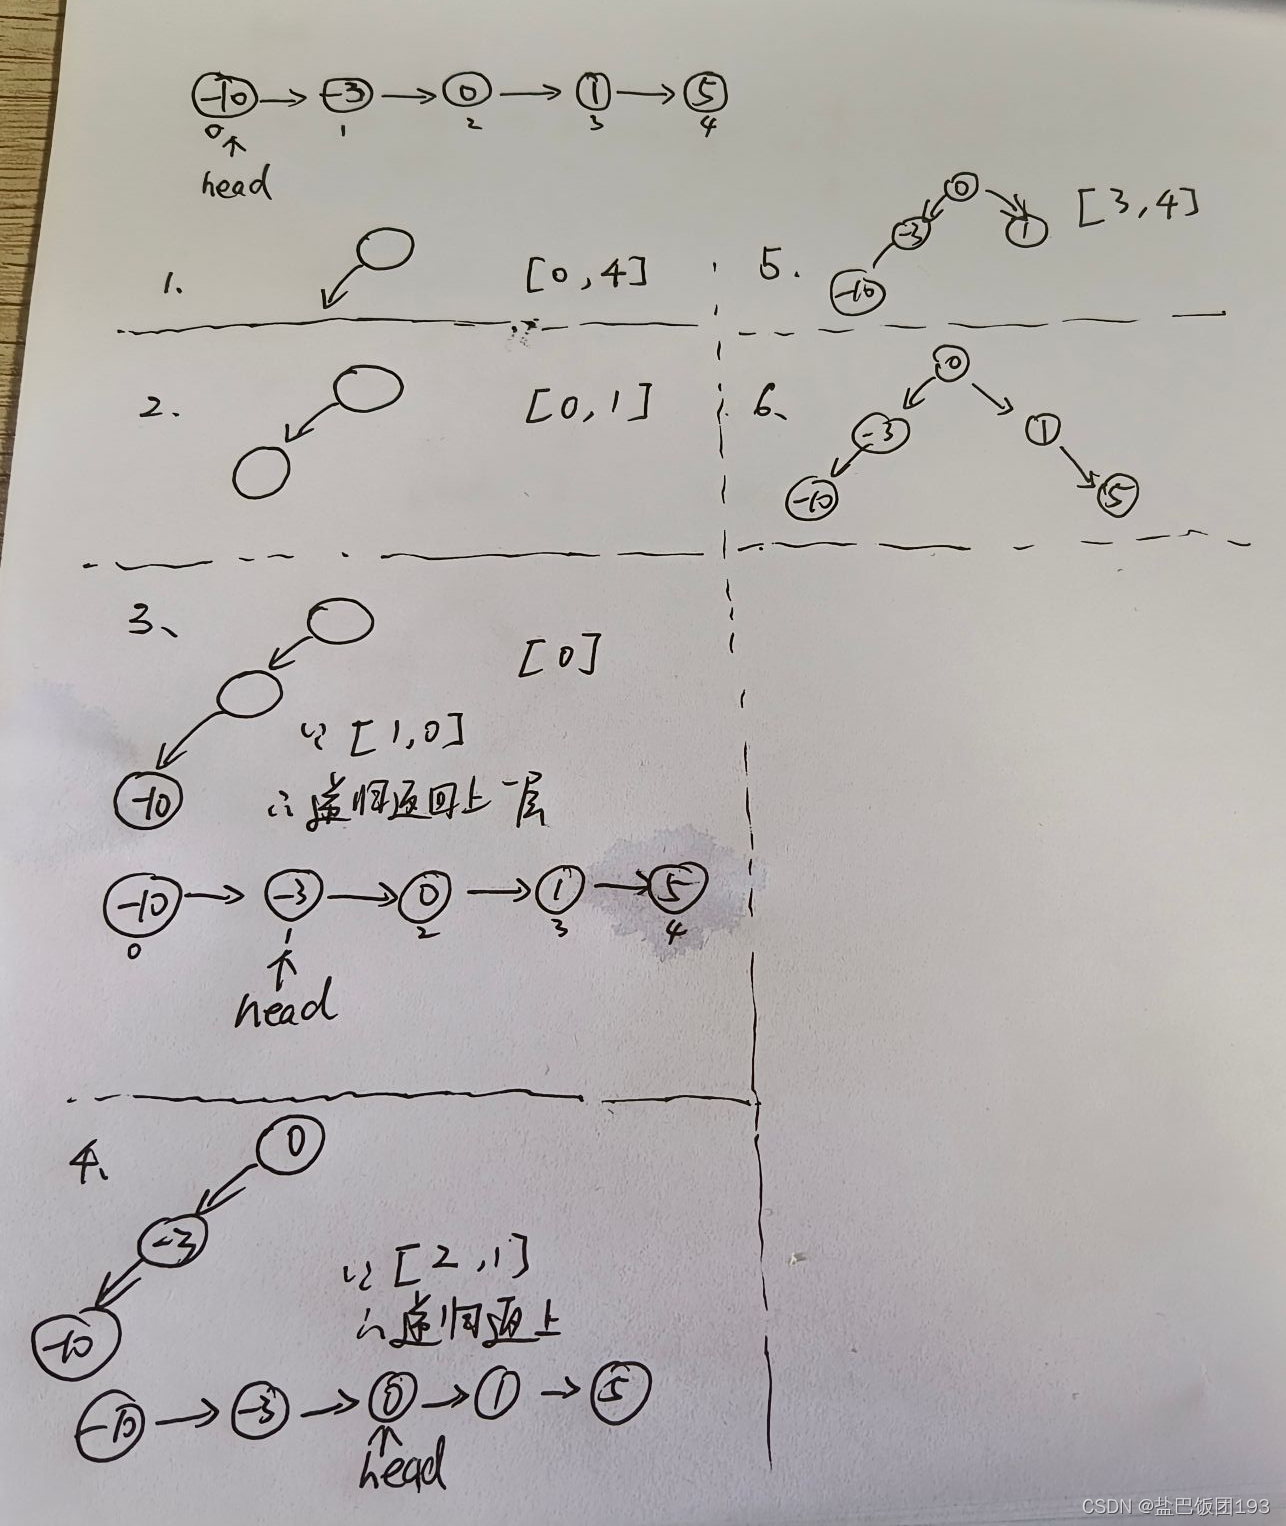 -10 → -3 → 0 → 1 → 5
0 1 2 3 4
head
1. [0,4]
2. [0,1]
3、 [0]
∵ [1,0]
∴ 递归返回上一层
-10
-10 → -3 → 0 → 1 → 5
0 1 2 3 4
head
4、
0
-3
-10
∵ [2,1]
∴ 递归返上
-10 → -3 → 0 → 1 → 5
head
5.
0 [3,4]
-3 1
-10
6、
0
-3 1
-10 5
CSDN @盐巴饭团193